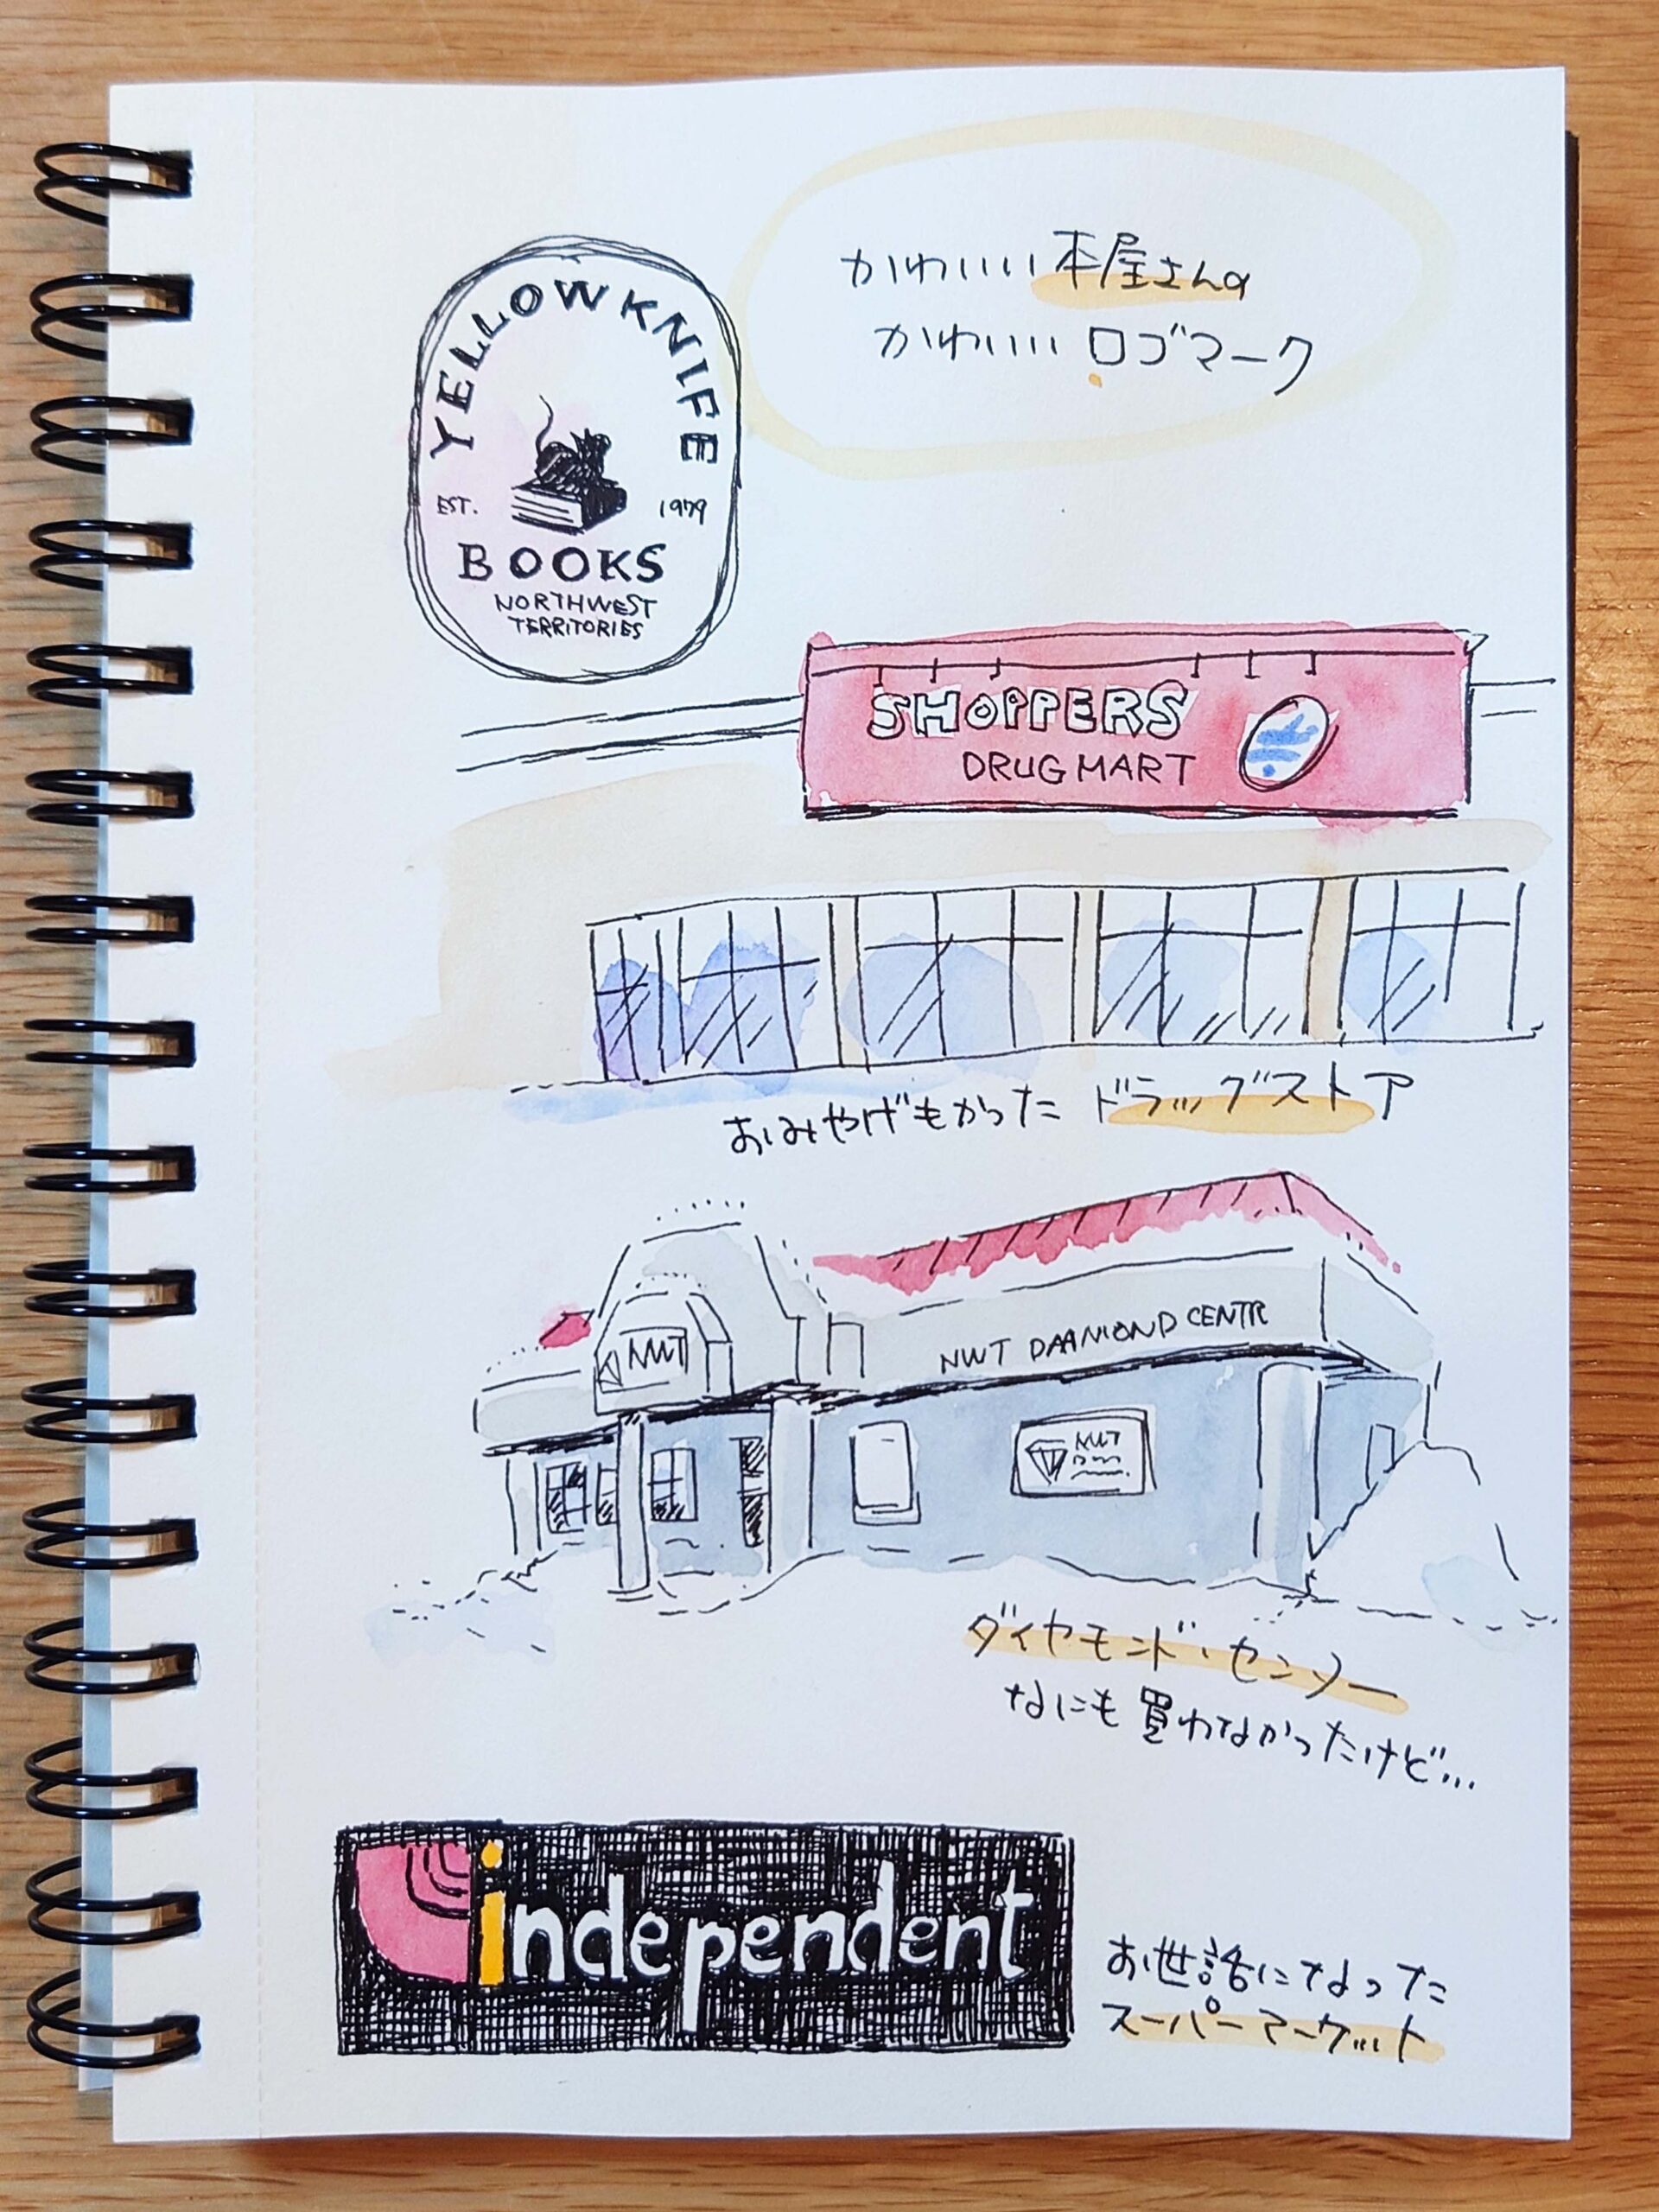 かわいい本屋さんの
かわいいロゴマーク
YELLOWKNIFE
EST. 1979
BOOKS
NORTHWEST
TERRITORIES
SHOPPERS
DRUG MART
おみやげもかった ドラッグストア
NWT
NWT DAAMOND CENTR
NWT
ダイヤモンド・センター
なにも買わなかったけど...
independent
お世話になった
スーパーマーケット